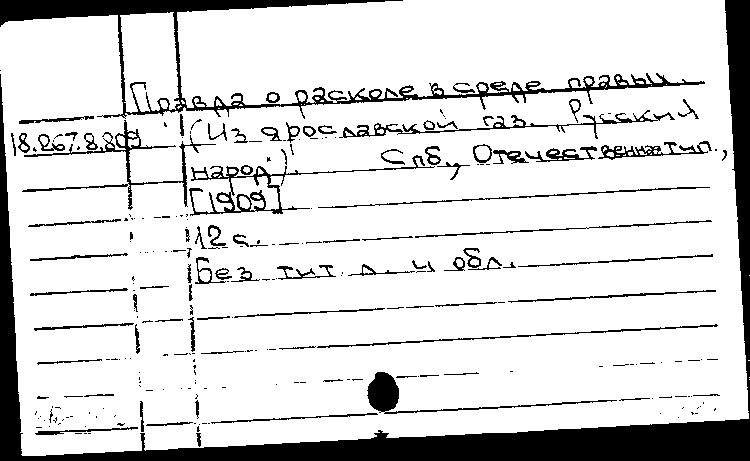 Правда о расколе в среде правых.
18.267.8.809 (Из ярославской газ. „Русский
народ"). Спб., Отечественная тип.,
[1909].
12 с.
Без тит. л. и обл.